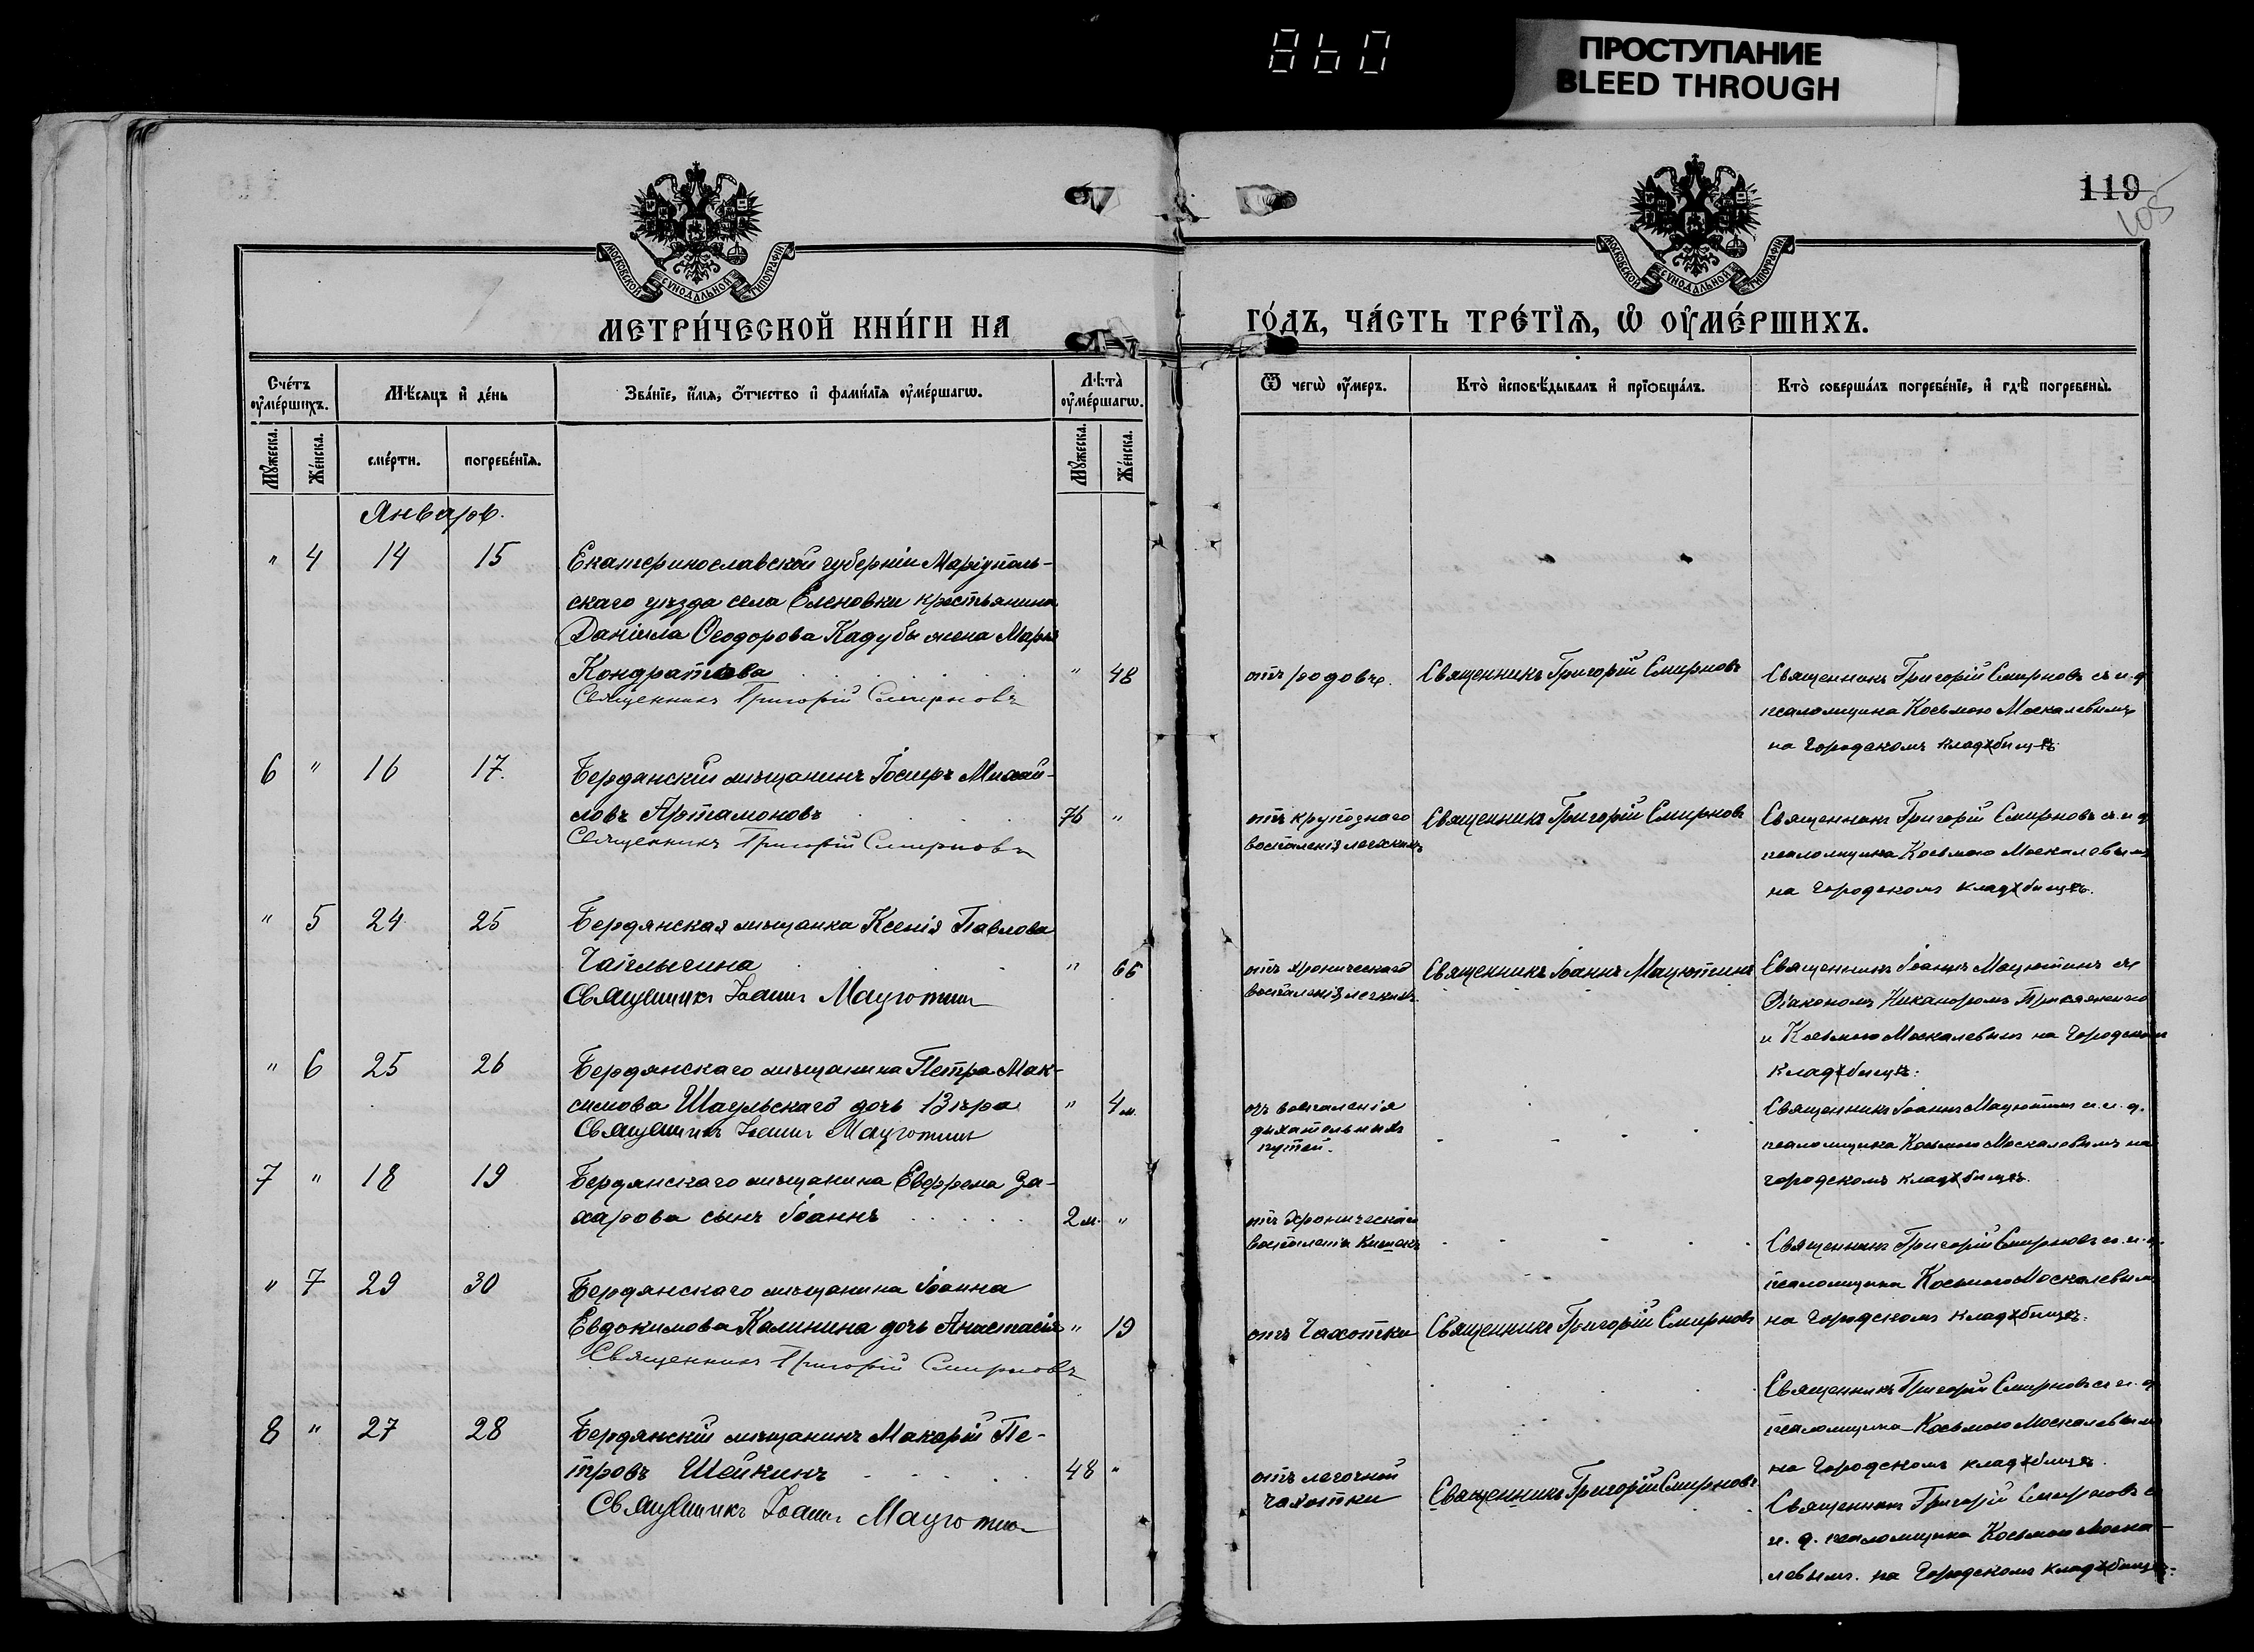 860
ПРОСТУПАНИЕ
BLEED THROUGH
119
105
МОСКОВСКОЙ СѴНОДАЛЬНОЙ ТИПОГРАФІИ
МОСКОВСКОЙ СѴНОДАЛЬНОЙ ТИПОГРАФІИ
МЕТРИ́ЧЕСКОЙ КНИ́ГИ НА
ГО́ДЪ, ЧА́СТЬ ТРЕ́ТЇѦ, Ѽ ОУ҆МЕ́РШИХЪ.
Сче́тъ оу҆ме́ршихъ.
Мѣ́сяцъ и҆ де́нь
Зва́нїе, и҆́мя, ѻ҆́тчество и҆ фами́лїя оу҆ме́ршагѡ.
Лѣта̀ оу҆ме́ршагѡ.
Ѿ чегѡ̀ оу҆́меръ.
Кто̀ и҆сповѣ́дывалъ и҆ прїѻбща́лъ.
Кто̀ соверша́лъ погребе́нїе, и҆ гдѣ̀ погребены̀.
Мꙋ́жеска.
Же́нска.
сме́рти.
погребе́нїя.
Мꙋ́жеска.
Же́нска.
Январь.
" 4 14 15 Екатеринославской губерніи Маріуполь-
скаго уѣзда села Еленовки крестьянина
Даніила Ѳеодорова Кадубы жена Марія
Кондратьева " 48
Священникъ Григорій Смирновъ
отъ родовъ.
Священникъ Григорій Смирновъ
Священникъ Григорій Смирновъ съ и. д.
псаломщика Косьмою Москалевымъ
на городскомъ кладбищѣ.
6 " 16 17. Бердянскій мѣщанинъ Іосифъ Михай-
ловъ Артамоновъ 76 "
Священникъ Григорій Смирновъ
отъ крупознаго
воспаленія легкихъ
Священникъ Григорій Смирновъ
Священникъ Григорій Смирновъ съ и. д.
псаломщика Косьмою Москалевымъ
на городскомъ кладбищѣ.
" 5 24 25 Бердянская мѣщанка Ксенія Павлова
" 66
Священникъ Іоаннъ Мацютинъ
отъ хроническаго
воспаленія легкихъ
Священникъ Іоаннъ Мацютинъ
Священникъ Іоаннъ Мацютинъ съ
Діакономъ Никаноромъ
и Косьмою Москалевымъ на городскомъ
кладбищѣ.
" 6 25 26 Бердянскаго мѣщанина Петра Мак-
симова Шагульскаго дочь Вѣра " 4 м.
Священникъ Іоаннъ Мацютинъ
отъ воспаленія
дыхательныхъ
путей.
Священникъ Іоаннъ Мацютинъ с. и. д.
псаломщика Косьмою Москалевымъ на
городскомъ кладбищѣ.
7 " 18 19 Бердянскаго мѣщанина Ефрема За-
харова сынъ Іоаннъ 2 м. "
отъ хроническаго
воспаленія кишекъ
Священникъ Григорій Смирновъ с. и. д.
псаломщика Косьмою Москалевымъ
на городскомъ кладбищѣ.
" 7 29 30 Бердянскаго мѣщанина Іоанна
Евдокимова Калинина дочь Анастасія " 19
Священникъ Григорій Смирновъ
отъ чахотки
Священникъ Григорій Смирновъ
Священникъ Григорій Смирновъ с. и. д.
псаломщика Косьмою Москалевымъ
на городскомъ кладбищѣ.
8 " 27 28 Бердянскій мѣщанинъ Макарій Пе-
тровъ Шейкинъ 48 "
Священникъ Іоаннъ Мацютинъ
отъ легочной
чахотки
Священникъ Григорій Смирновъ
Священникъ Григорій Смирновъ с
и. д. псаломщика Косьмою Моска-
левымъ на городскомъ кладбищѣ.